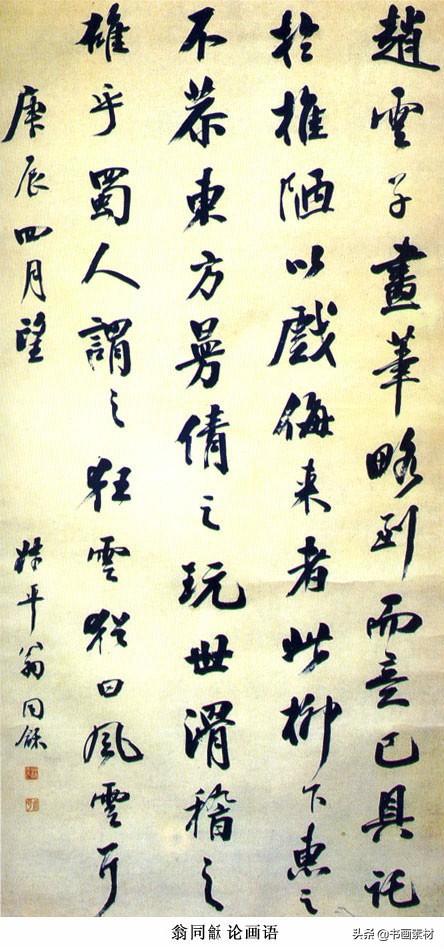 趙雲子畫筆略到而意已具託
於椎陋以戲侮来者此柳下惠之
不恭東方曼倩之玩世滑稽之
雄乎蜀人謂之狂雲猶曰風雲耳
庚辰四月望
叔平翁同龢
翁同龢 论画语
头条 @书画素材